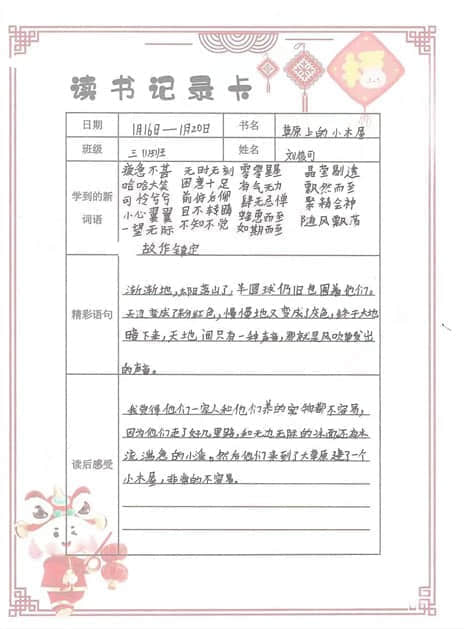 福
读书记录卡
日期 1月16日—1月20日 书名 草原上的小木屋
班级 姓名
学到的新词语
无时无刻 零零星星 晶莹剔透
哈哈大笑 困意十足 有气无力 飘然而至
可怜兮兮 前俯后仰 肆无忌惮 聚精会神
小心翼翼 目不转睛 随风飘荡
一望无际 不知不觉 如期而至
故作镇定
精彩语句
渐渐地,太阳落山了,半圆球仍旧包围着他们。
天边变成了粉红色,慢慢地又变成了灰色,终于大地
暗下来,天地间只有一种声音,那就是风吹草发出
的声音。
读后感受
我觉得他们一家人和他们养的宠物都不容易,
因为他们走了好几里路,和无边无际的冰面还有水
流湍急的小溪。然后他们来到了大草原建了一个
小木屋,非常的不容易。